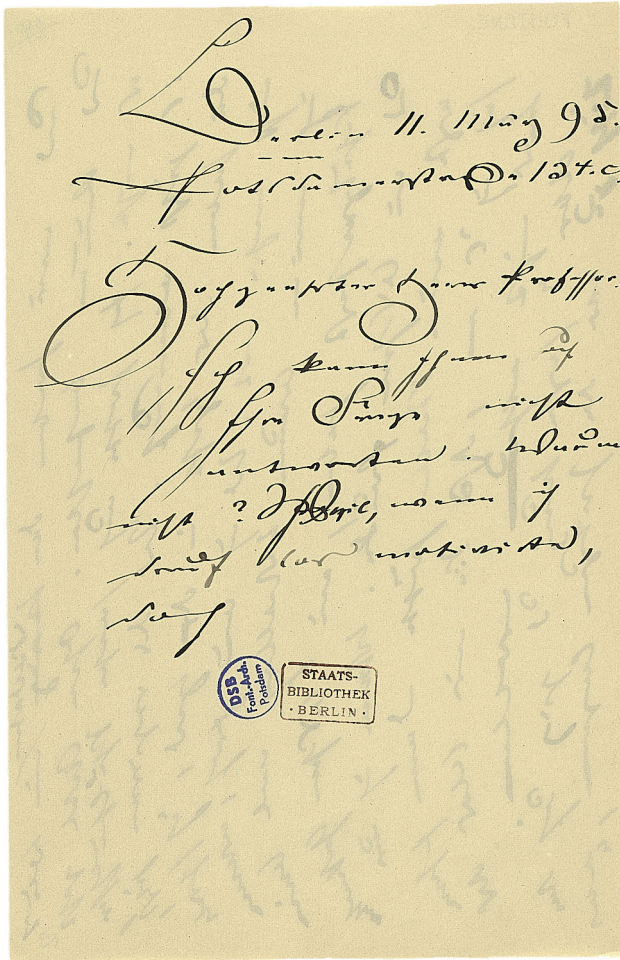 Berlin 11. März 95.
Potsdamerstraße 134.c.
Hochgeehrter Herr Professor.
Ich kann Ihnen auf
Ihre Frage nicht
antworten. Warum
nicht? Weil, wenn ich
drauf los motivirte,
doch
DSB
Font.-Arch.
Potsdam
STAATS-
BIBLIOTHEK
· BERLIN ·